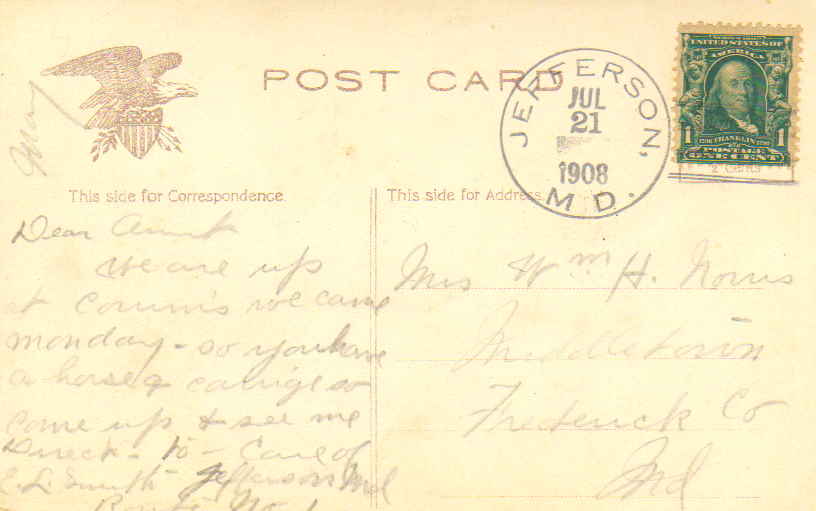 POST CARD
JEFFERSON,
JUL
21
1908
MD.
UNITED STATES OF
AMERICA
1 FRANKLIN 1
POSTAGE
ONE CENT
May
This side for Correspondence.
This side for Address.
Dear Aunt
we are up
at we came
monday - so you have
a horse & carrige so
come up & see me
Direct - to - Care of
C. L. Smith Jefferson Md
Route No. 1
Mrs Wm H. Norris
Middletown
Frederick Co
Md